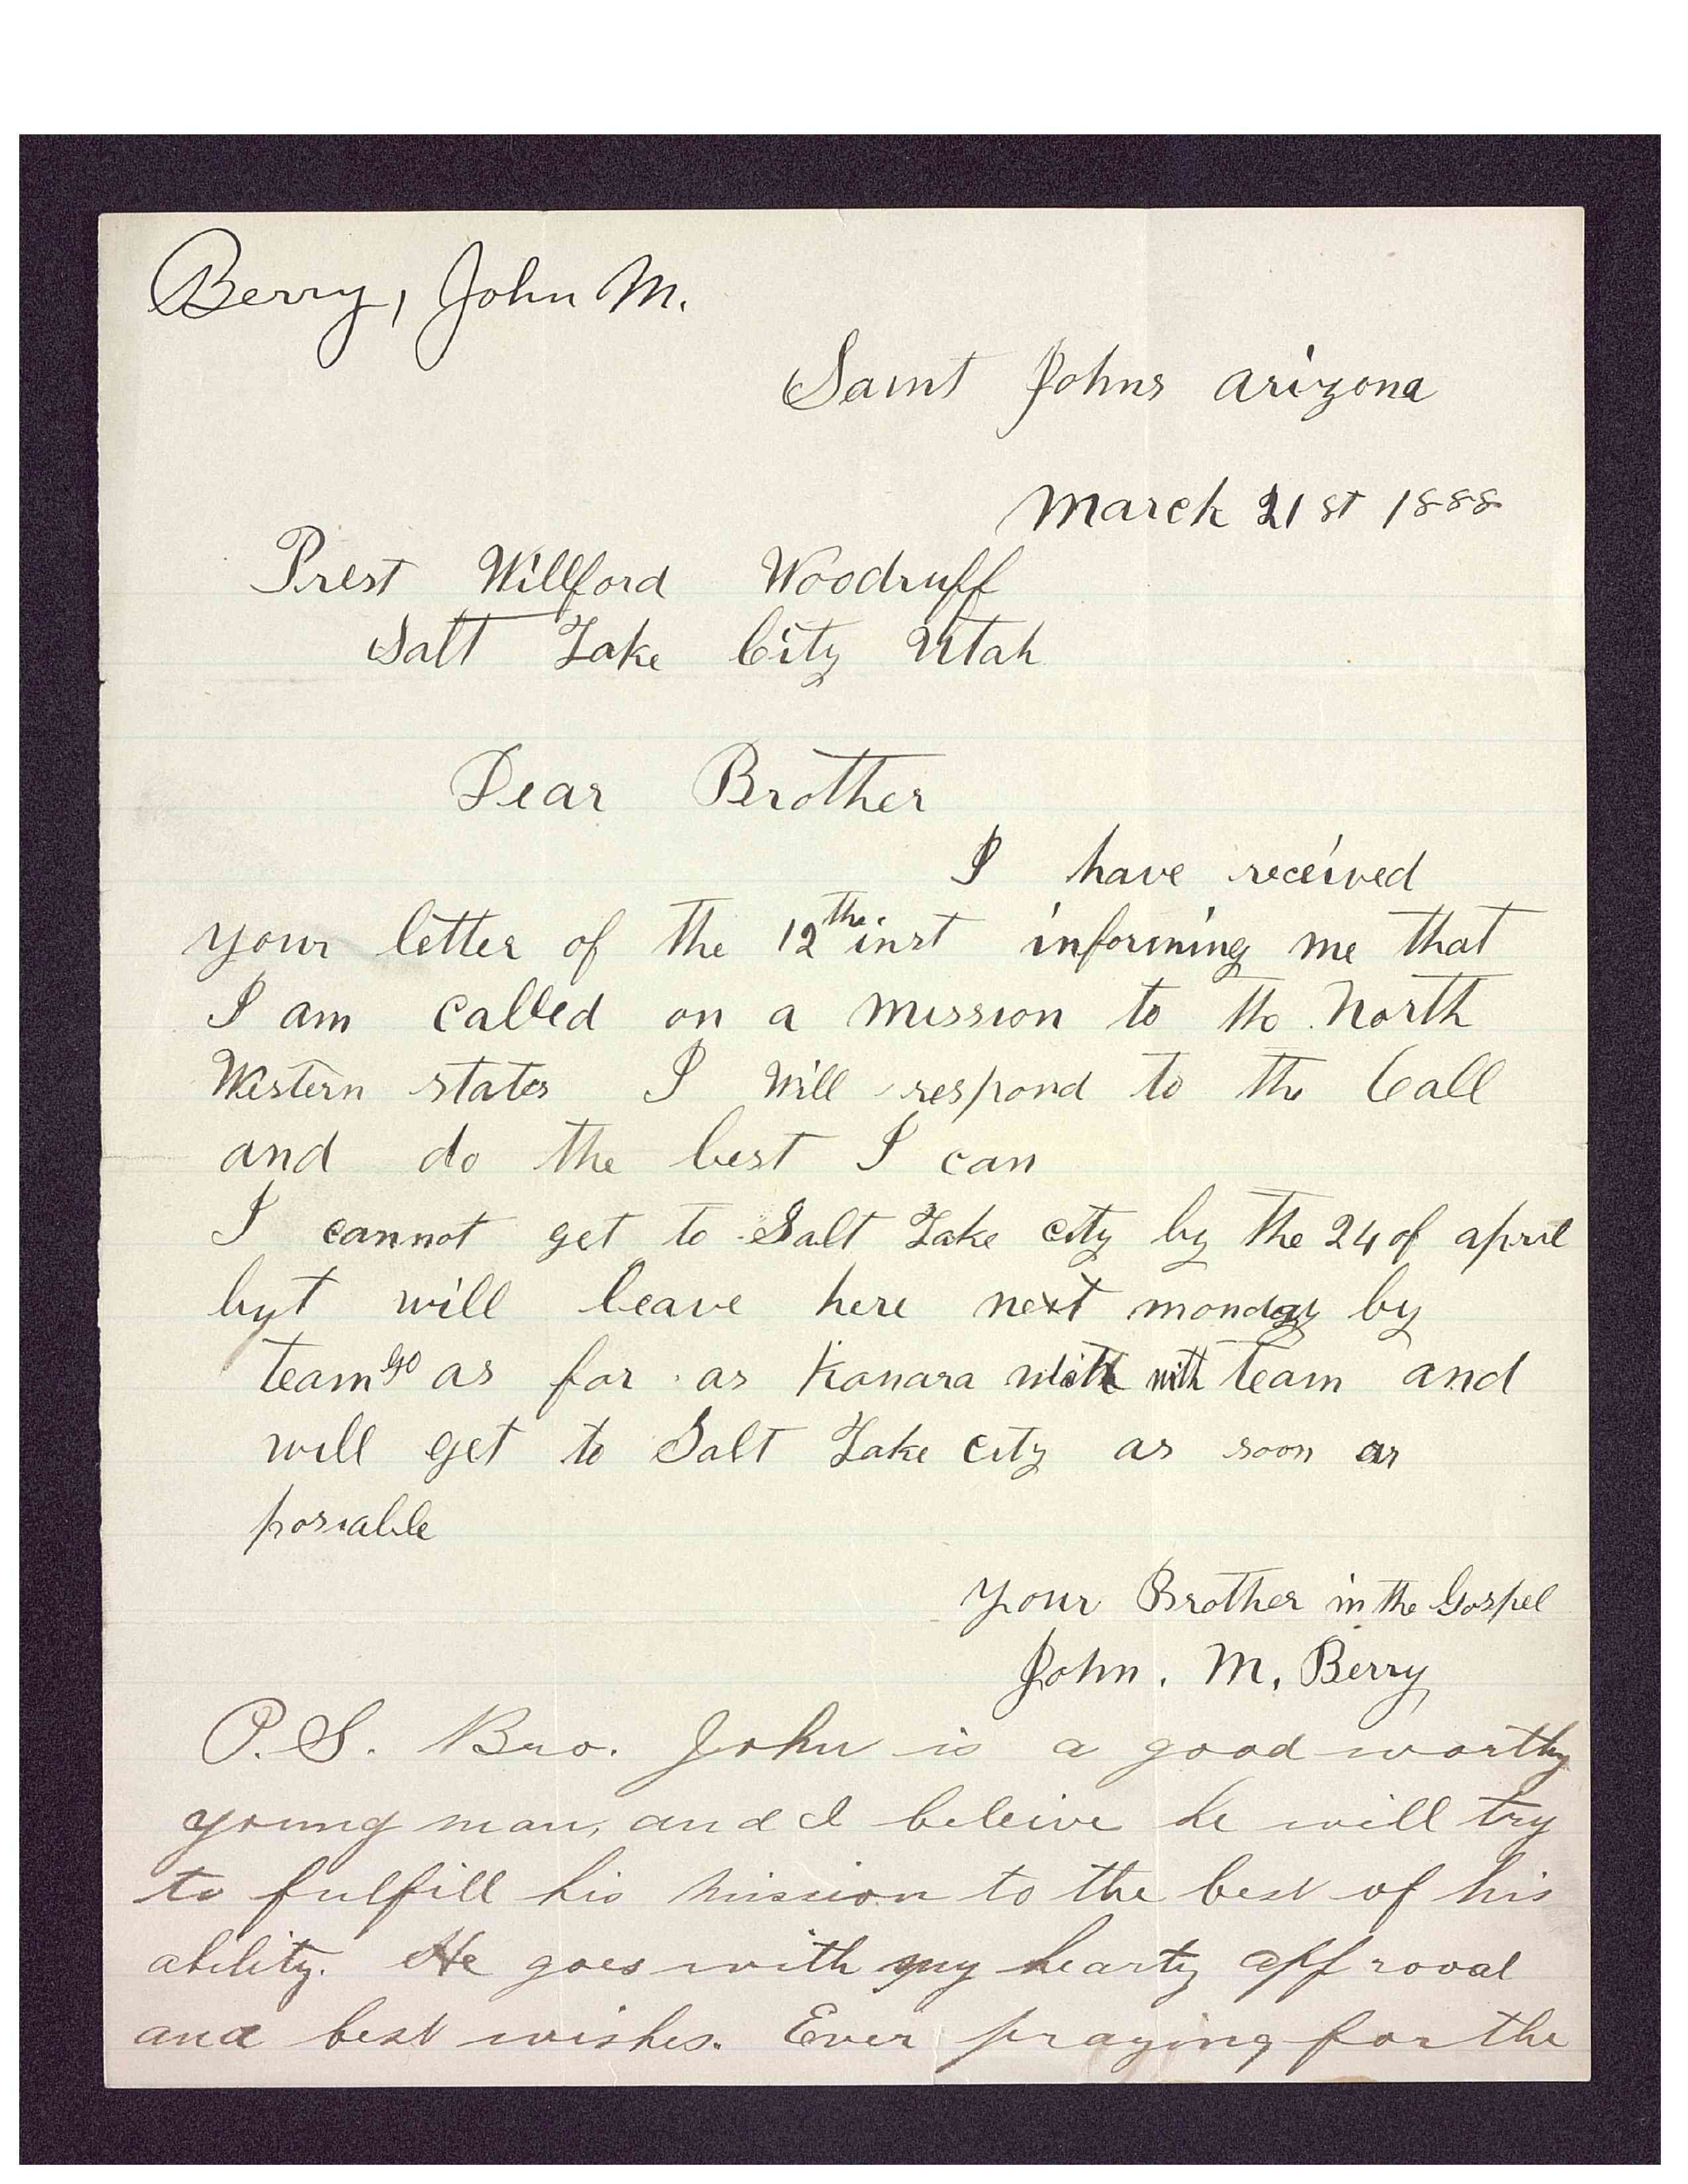 Berry, John M.
Saint Johns arizona
March 21st 1888
Prest Willford Woodruff
Salt Lake City Utah
Dear Brother
I have received
your letter of the 12th inst informing me that
I am called on a mission to the North
Western states I will respond to the Call
and do the best I can
I cannot get to Salt Lake city by the 24 of april
byt will leave here next monday by
team go as far as Kanara with team and
will get to Salt Lake city as soon as
posiable
your Brother in the Gospel
John. M. Berry
P.S. Bro. John is a good worthy
young man, and I beleive he will try
to fulfill his mission to the best of his
ability. He goes with my hearty approval
and best wishes. Ever praying for the